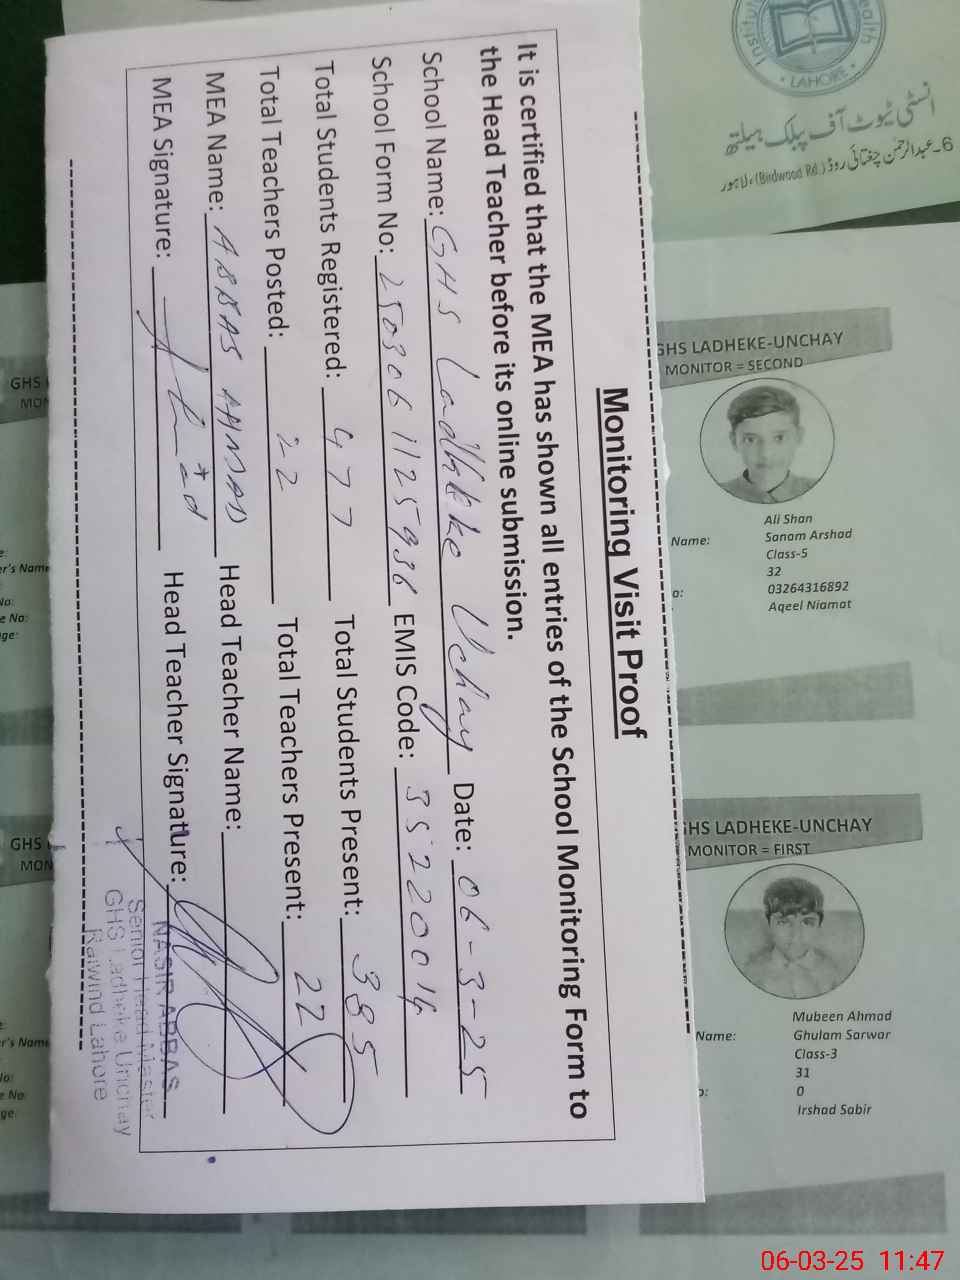 Monitoring Visit Proof
It is certified that the MEA has shown all entries of the School Monitoring Form to
the Head Teacher before its online submission.
School Name: GHS Ladhkke Uchay Date: 06-3-25
School Form No: EMIS Code: 35220016
Total Students Registered: 477 Total Students Present: 385
Total Teachers Posted: 22 Total Teachers Present: 22
MEA Name: ABBAS AHMAD Head Teacher Name:
MEA Signature: Head Teacher Signature:
NASIR ABBAS
Senior Head Master
GHS Ladheke Unchay
Raiwind Lahore
LAHORE
انسٹی ٹیوٹ آف پبلک ہیلتھ
6۔عبدالرحمٰن چغتائی روڈ (Birdwood Rd.)، لاہور
GHS LADHEKE-UNCHAY
MONITOR = SECOND
Ali Shan
Name: Sanam Arshad
Class-5
32
03264316892
Aqeel Niamat
HS LADHEKE-UNCHAY
MONITOR = FIRST
Mubeen Ahmad
Name: Ghulam Sarwar
Class-3
31
0
Irshad Sabir
GHS
MON
er's Name
No:
e No:
ge:
GHS
MON
r's Name
No:
e No:
ge:
06-03-25 11:47